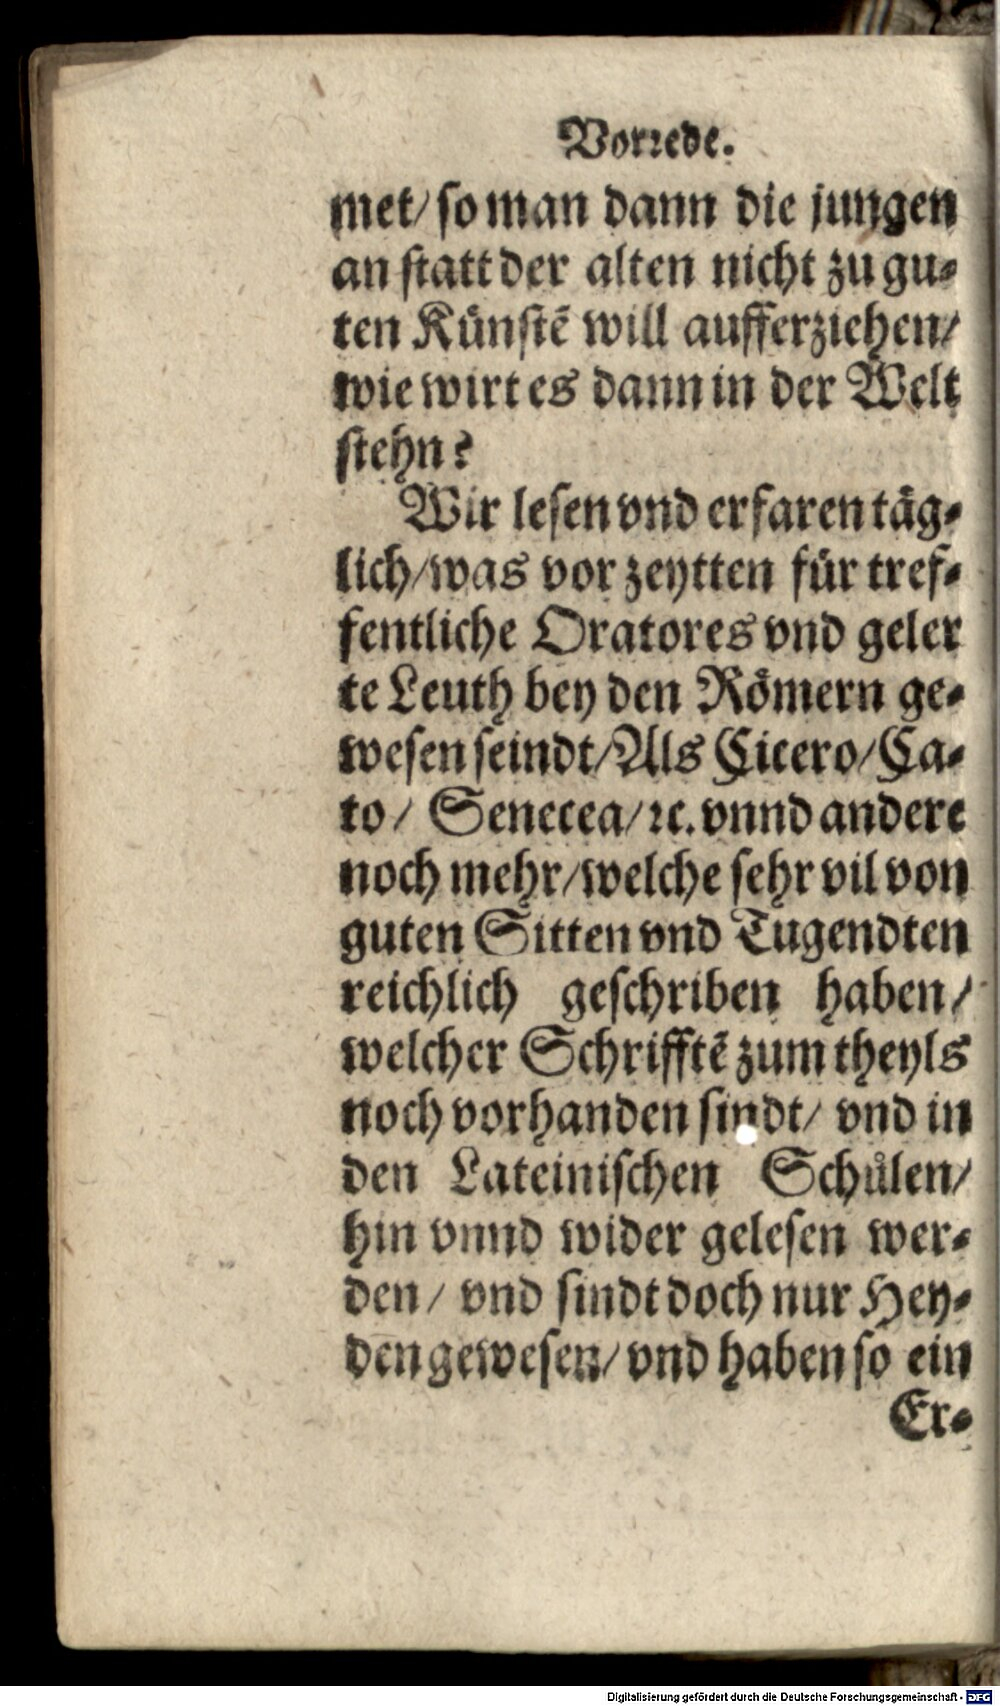 Vorrede.
met/ so man dann die jungen
an statt der alten nicht zu gu-
ten Künstē will aufferziehen/
wie wirt es dann in der Welt
stehn?
Wir lesen vnd erfaren täg-
lich/ was vor zeytten für tref-
fentliche Oratores vnd geler
te Leuth bey den Römern ge-
wesen seindt/ Als Cicero/ Ca-
to/ Senecea/ ꝛc. vnnd andere
noch mehr/ welche sehr vil von
guten Sitten vnd Tugendten
reichlich geschriben haben/
welcher Schrifftē zum theyls
noch vorhanden sindt/ vnd in
den Lateinischen Schůlen/
hin vnnd wider gelesen wer-
den/ vnd sindt doch nur Hey-
den gewesen/ vnd haben so ein
Er-
Digitalisierung gefördert durch die Deutsche Forschungsgemeinschaft - DFG